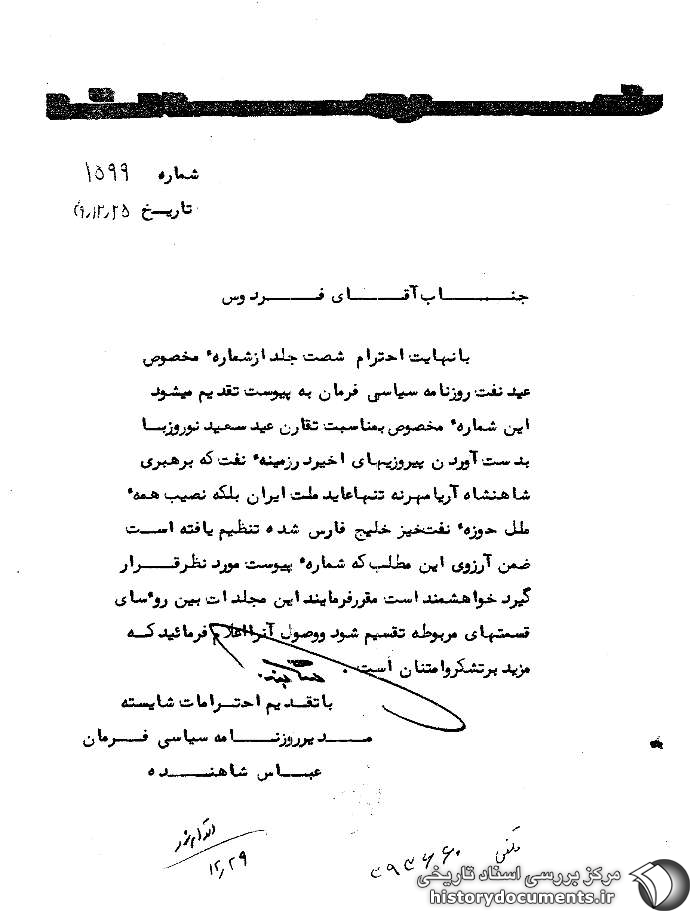 شماره ۱۵۹۹
تاریخ ۴۹٫۱۲٫۲۵
جناب آقای فردوس
با نهایت احترام شصت جلد از شمارهٔ مخصوص
عید نفت روزنامه سیاسی فرمان به پیوست تقدیم میشود
این شمارهٔ مخصوص بمناسبت تقارن عید سعید نوروز با
بدست آوردن پیروزیهای اخیر در زمینهٔ نفت که برهبری
شاهنشاه آریامهر نه تنها عاید ملت ایران بلکه نصیب همهٔ
ملل حوزهٔ نفت‌خیز خلیج فارس شده تنظیم یافته است
ضمن آرزوی این مطلب که شمارهٔ پیوست مورد نظر قرار
گیرد خواهشمند است مقرر فرمایند این مجلدات بین روٴسای
قسمتهای مربوطه تقسیم شود و وصول آنرا اعلام فرمائید که
مزید بر تشکر و امتنان است .
با تقدیم احترامات شایسته
مدیر روزنامه سیاسی فرمان
عباس شاهنده
اقدام شد
۱۲٫۲۹
تلفنی
مرکز بررسی اسناد تاریخی
historydocuments.ir